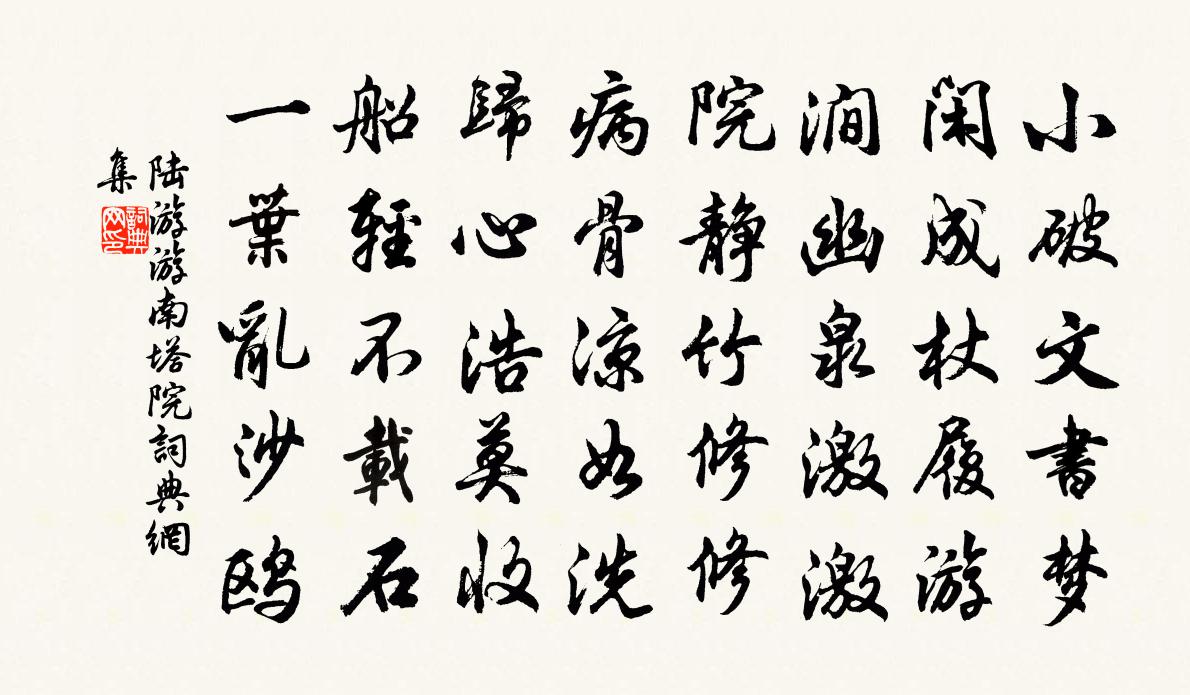 小破文書梦
閑成杖履游
澗幽泉激激
院静竹修修
病骨凉如洗
歸心浩莫收
船輕不載石
一葉亂沙鸥
陆游游南塔院詞典網
集
詞典
网印